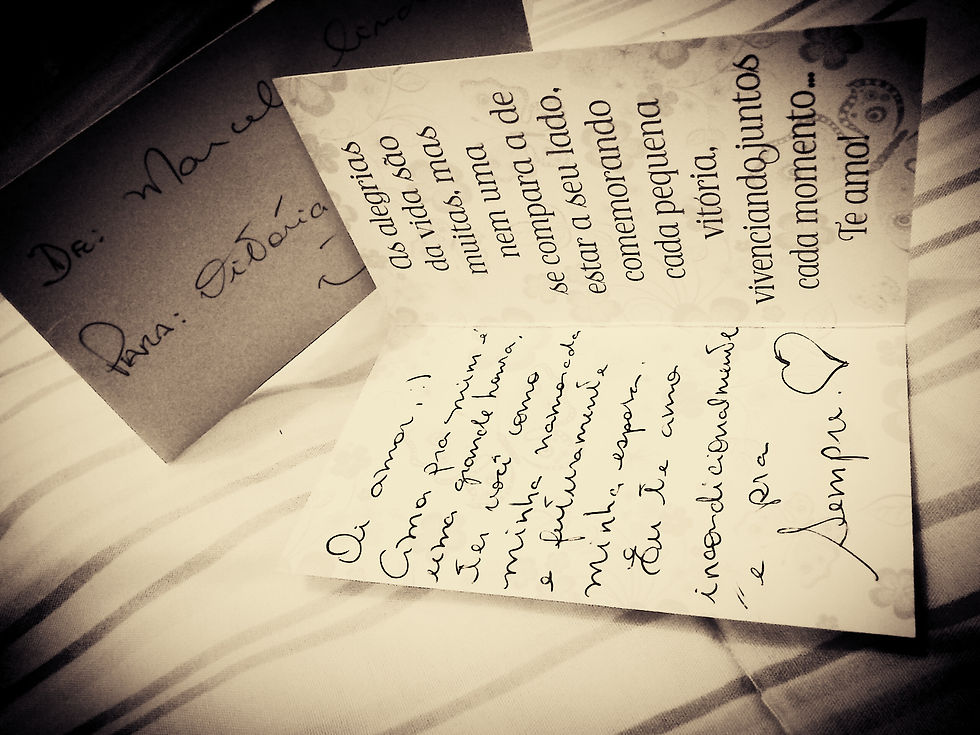 De: Marcel
Para: Vitória
as alegrias
da vida são
muitas, mas
nem uma
nem a de
se compara a de
estar a seu lado,
comemorando
cada pequena
vitória,
vivenciando juntos
cada momento...
Te amo!
Oi amor, :)
pra mim é
uma grande honra,
ter você como
minha namorada
e futuramente
minha esposa.
Eu te amo
incondicionalmente
e pra
sempre.